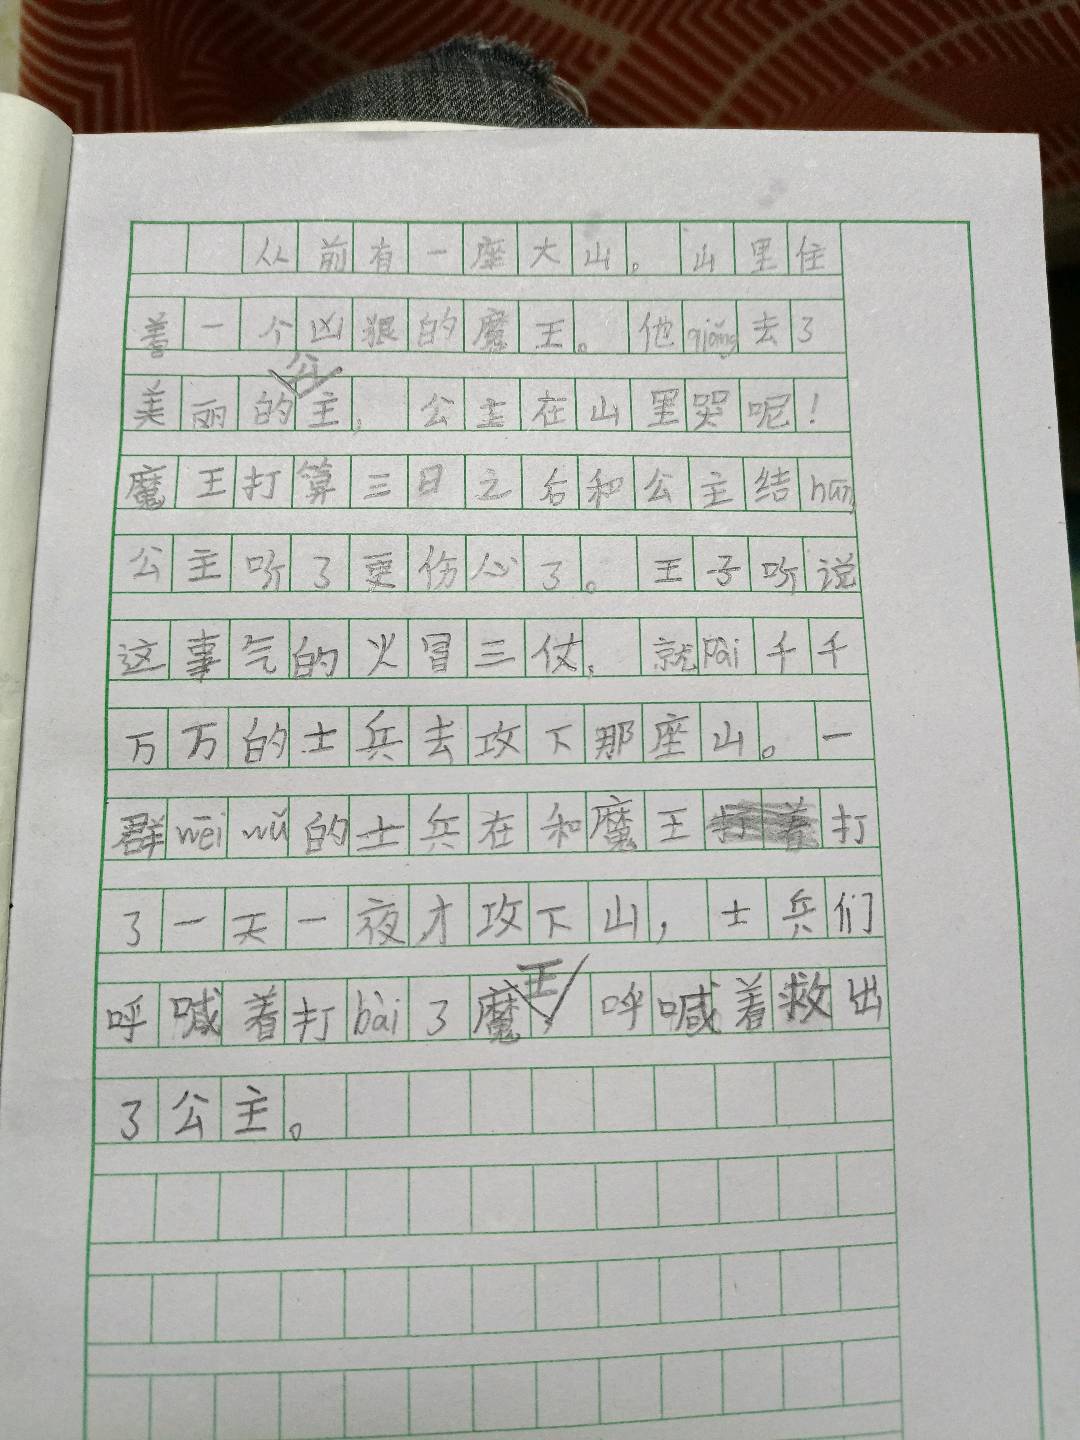 从前有一座大山。山里住
着一个凶狠的魔王。他qiǎng去了
美丽的公主，公主在山里哭呢！
魔王打算三日之后和公主结hūn，
公主听了更伤心了。王子听说
这事气的火冒三仗，就Pài千千
万万的士兵去攻下那座山。一
群wēi wǔ的士兵在和魔王打
了一天一夜才攻下山，士兵们
呼喊着打bài了魔王，呼喊着救出
了公主。